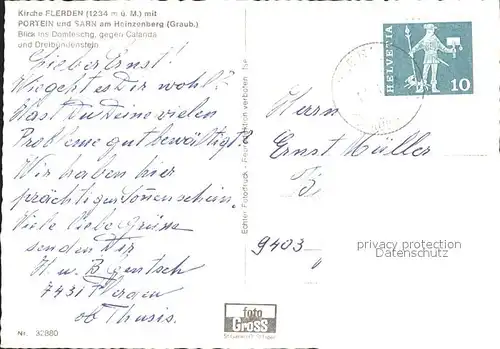 Kirche FLERDEN (1234 m ü. M.) mit
PORTEIN und SARN am Heinzenberg (Graub.)
Blick ins Domleschg, gegen Calanda
und Dreibündenstein
Lieber Ernst!
Wie geht es Dir wohl?
Hast Du Deine vielen
Probleme gut bewältigt?
Wir haben hier
prächtigen Sonnenschein.
Viele liebe Grüsse
senden Dir
H. u. B.
7431
ob Thusis.
Nr. 32880
Echter Fotodruck - Reproduktion verboten
foto
Gross
HELVETIA
10
Herrn
Ernst Müller
9403
privacy protection
Datenschutz